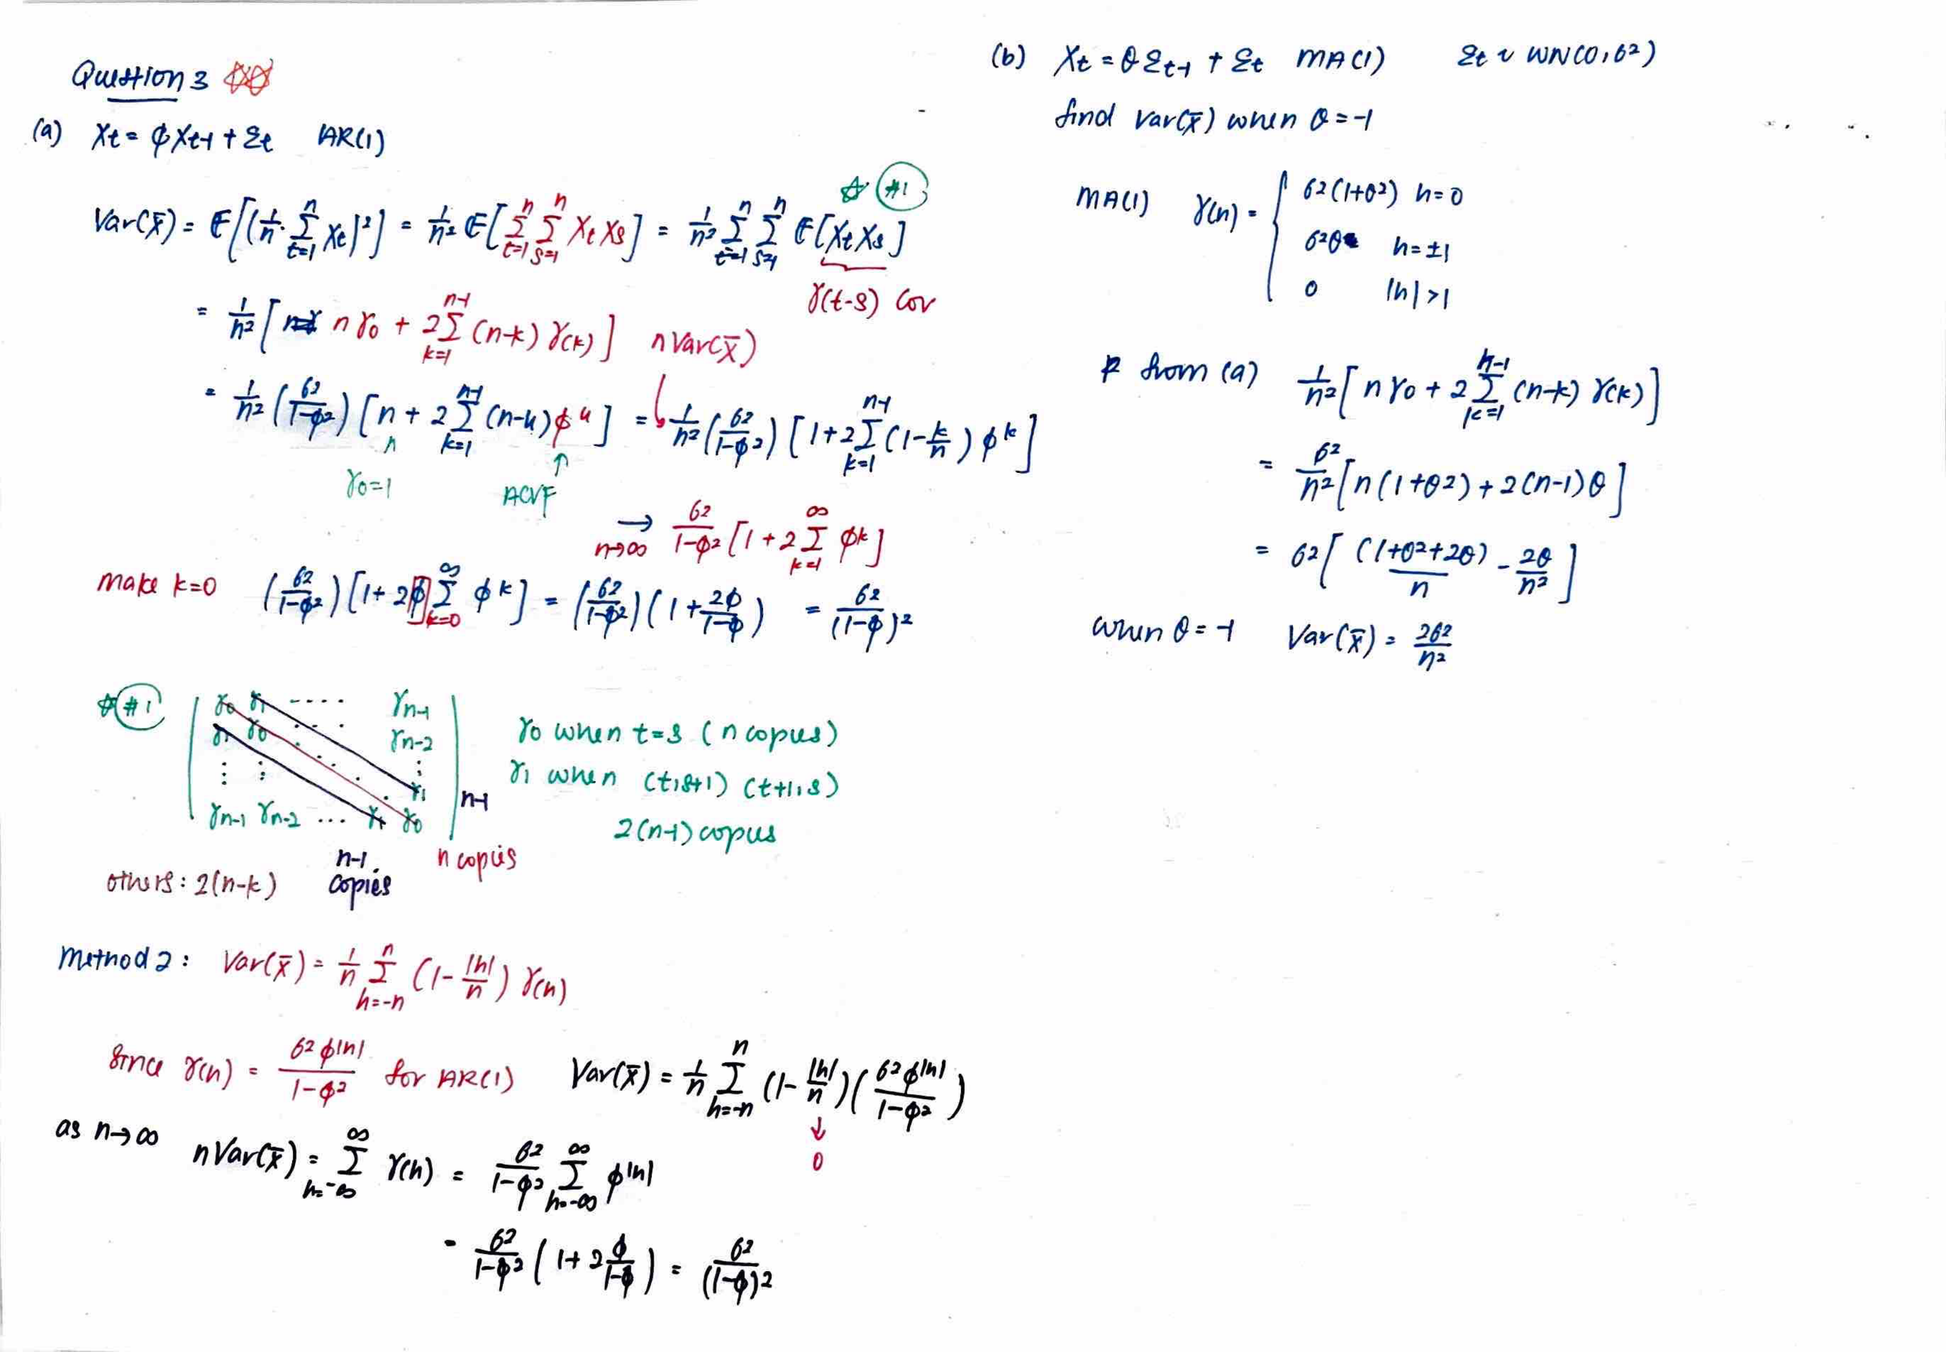 Question 3
(a) Xt = φXt-1 + Σt AR(1)
☆ #1
Var(X̄) = E[(1/n · Σ_{t=1}^{n} Xt)²] = 1/n² E[Σ_{t=1}^{n} Σ_{s=1}^{n} Xt Xs] = 1/n² Σ_{t=1}^{n} Σ_{s=1}^{n} E[Xt Xs]
γ(t-s) cov
= 1/n² [nγ0 + 2Σ_{k=1}^{n-1} (n-k) γ(k)] nVar(X̄)
= 1/n² (σ²/(1-φ²)) [n + 2Σ_{k=1}^{n-1} (n-k)φ^k] = 1/n² (σ²/(1-φ²)) [1 + 2Σ_{k=1}^{n-1} (1 - k/n) φ^k]
γ0=1 ACVF
→ n→∞ σ²/(1-φ²) [1 + 2Σ_{k=1}^{∞} φ^k]
make k=0 (σ²/(1-φ²)) [1 + 2φ Σ_{k=0}^{∞} φ^k] = (σ²/(1-φ²)) (1 + 2φ/(1-φ)) = σ²/(1-φ)²
☆ #1
γ0 γ1 ---- γn-1
γ1 γ0 ... γn-2
⋮ ⋮ ⋮ γ1
γn-1 γn-2 ... γ1 γ0
n-1
n-1 copies
n copies
γ0 when t=s (n copies)
γ1 when (t,s+1) (t+1,s)
2(n-1) copies
others: 2(n-k)
Method 2: Var(X̄) = 1/n Σ_{h=-n}^{n} (1 - |h|/n) γ(h)
Since γ(h) = σ²φ^|h|/(1-φ²) for AR(1) Var(X̄) = 1/n Σ_{h=-n}^{n} (1 - |h|/n)(σ²φ^|h|/(1-φ²))
↓
0
as n→∞ nVar(X̄) = Σ_{h=-∞}^{∞} γ(h) = σ²/(1-φ²) Σ_{h=-∞}^{∞} φ^|h|
= σ²/(1-φ²) (1 + 2 φ/(1-φ)) = σ²/(1-φ)²
(b) Xt = θΣt-1 + Σt MA(1) Σt ~ WN(0,σ²)
find Var(X̄) when θ=-1
MA(1) γ(h) = { σ²(1+θ²) h=0
σ²θ h=±1
0 |h|>1
from (a) 1/n² [nγ0 + 2Σ_{k=1}^{n-1} (n-k) γ(k)]
= σ²/n² [n(1+θ²) + 2(n-1)θ]
= σ² [(1+θ²+2θ)/n - 2θ/n²]
when θ=-1 Var(X̄) = 2σ²/n²